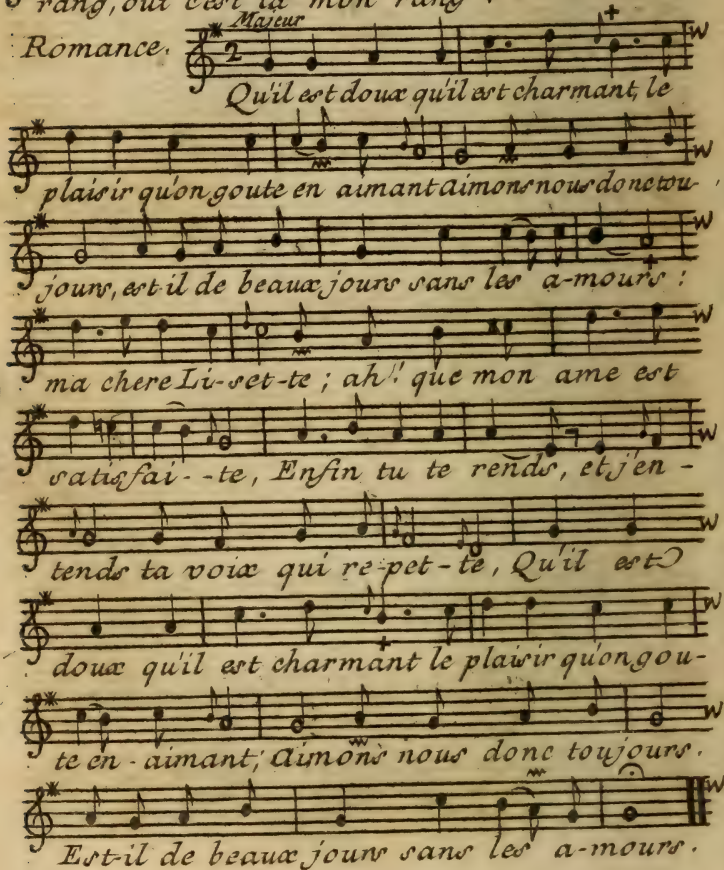 rang, oui c'est là mon rang.
Majeur
Romance. 2
Qu'il est doux qu'il est charmant, le
plaisir qu'on goute en aimant aimons nous donc tou-
jours, est-il de beaux jours sans les a-mours:
ma chere Li-set-te; ah!! que mon ame est
satisfai--te, Enfin tu te rends, et j'en-
tends ta voix qui re-pet-te, Qu'il est
doux qu'il est charmant le plaisir qu'on gou-
te en-aimant; aimons nous donc toujours.
Est-il de beaux jours sans les a-mours.